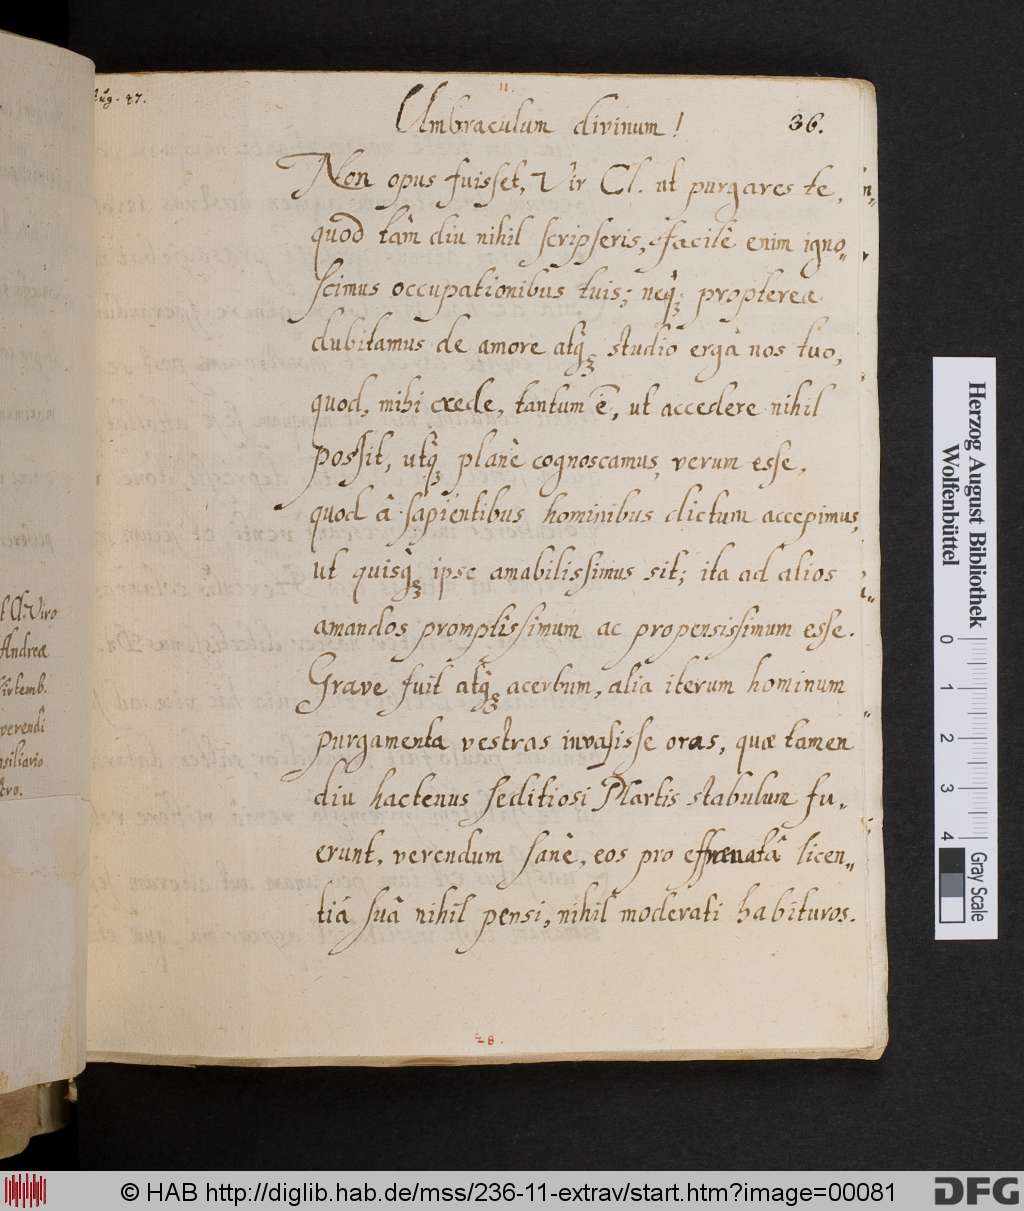 Aug. 47.
11.
Umbraculum divinum!
36.
Non opus fuisset, Vir Cl. ut purgares te,
quod tam̂ diu nihil scripseris, facilè enim igno„
scimus occupationibus tuis; neq̀ꝫ propterea
dubitamus de amore atq̀ꝫ studio ergà nos tuo,
quod, mihi crede, tantum ē, ut accedere nihil
possit, utq̀ꝫ planè cognoscamus verum esse,
quod â sapientibus hominibus dictum accepimus,
ut quisq̀ꝫ ipse amabilissimus sit; ita ad alios
amandos promptissimum ac propensissimum esse.
Grave fuit atq̀ꝫ acerbum, alia iterum hominum
purgamenta vestras invasisse oras, quæ tamen
diu hactenus seditiosi Martis stabulum fu„
erunt, verendum sanè, eos pro effrænatâ licen„
tiâ suâ nihil pensi, nihil moderati habituros.
28.
Cl. Viro
Andreæ
Wirtemb.
Herzog August Bibliothek
Wolfenbüttel
0
1
2
3
4
Gray Scale
© HAB http://diglib.hab.de/mss/236-11-extrav/start.htm?image=00081
DFG